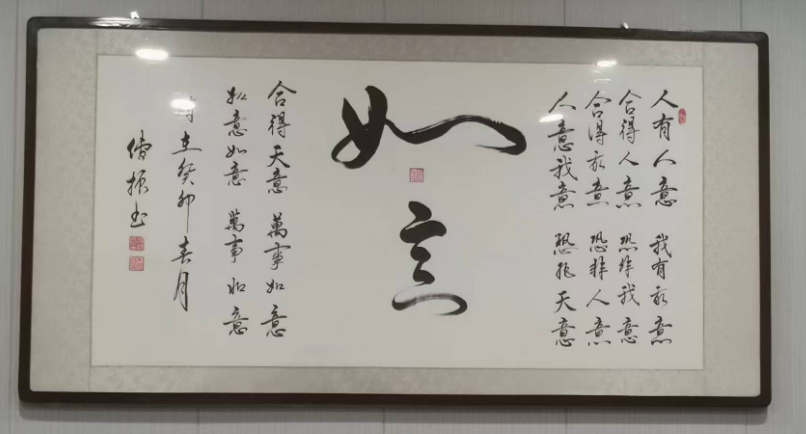 人有人意 我有我意
合得人意 恐非我意
合得我意 恐非人意
人意我意 恐非天意
如意
合得天意 萬事如意
如意如意 萬事如意
時在癸卯春月
振书